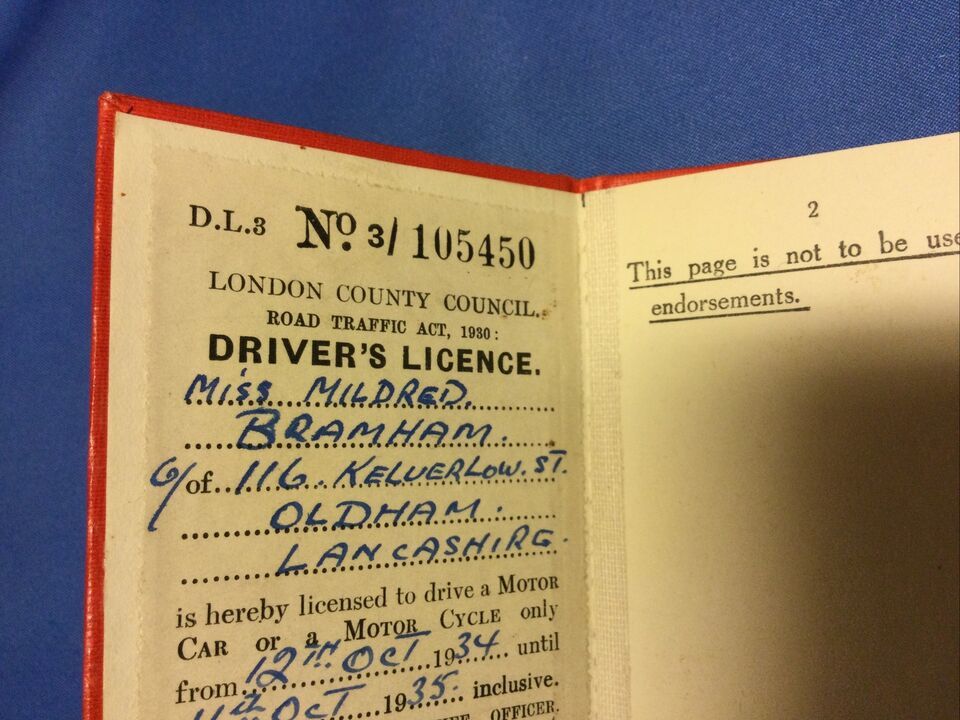 D.L.3 No. 3/ 105450
LONDON COUNTY COUNCIL.
ROAD TRAFFIC ACT, 1930:
DRIVER'S LICENCE.
Miss MILDRED.
BRAMHAM.
of 116. KELVERLOW. ST.
OLDHAM.
LANCASHIRE.
is hereby licensed to drive a MOTOR
CAR or a MOTOR CYCLE only
from 12TH OCT 1934 until
11th OCT 1935. inclusive.
OFFICER.
2
This page is not to be
endorsements.